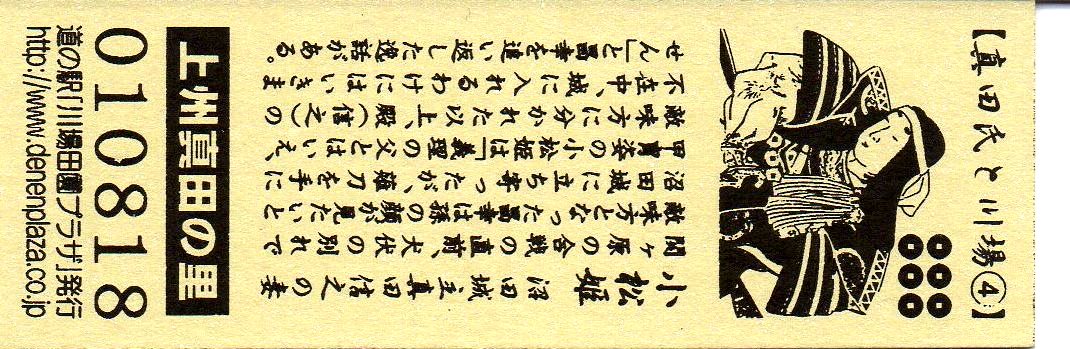 【真田氏と川場④】
小松姫 沼田城主真田信之の妻
関ヶ原の合戦の直前、犬伏の別れで
敵味方となった昌幸は孫の顔が見たいと
沼田城に立ち寄ったが、薙刀を手に
甲冑姿の小松姫は「義理の父とはいえ、
敵味方に分かれた以上、殿(信之)の
不在中、城に入れるわけにはいきま
せん」と昌幸を追い返した逸話がある。
上州真田の里
010818
道の駅「川場田園プラザ」発行
http://www.denenplaza.co.jp